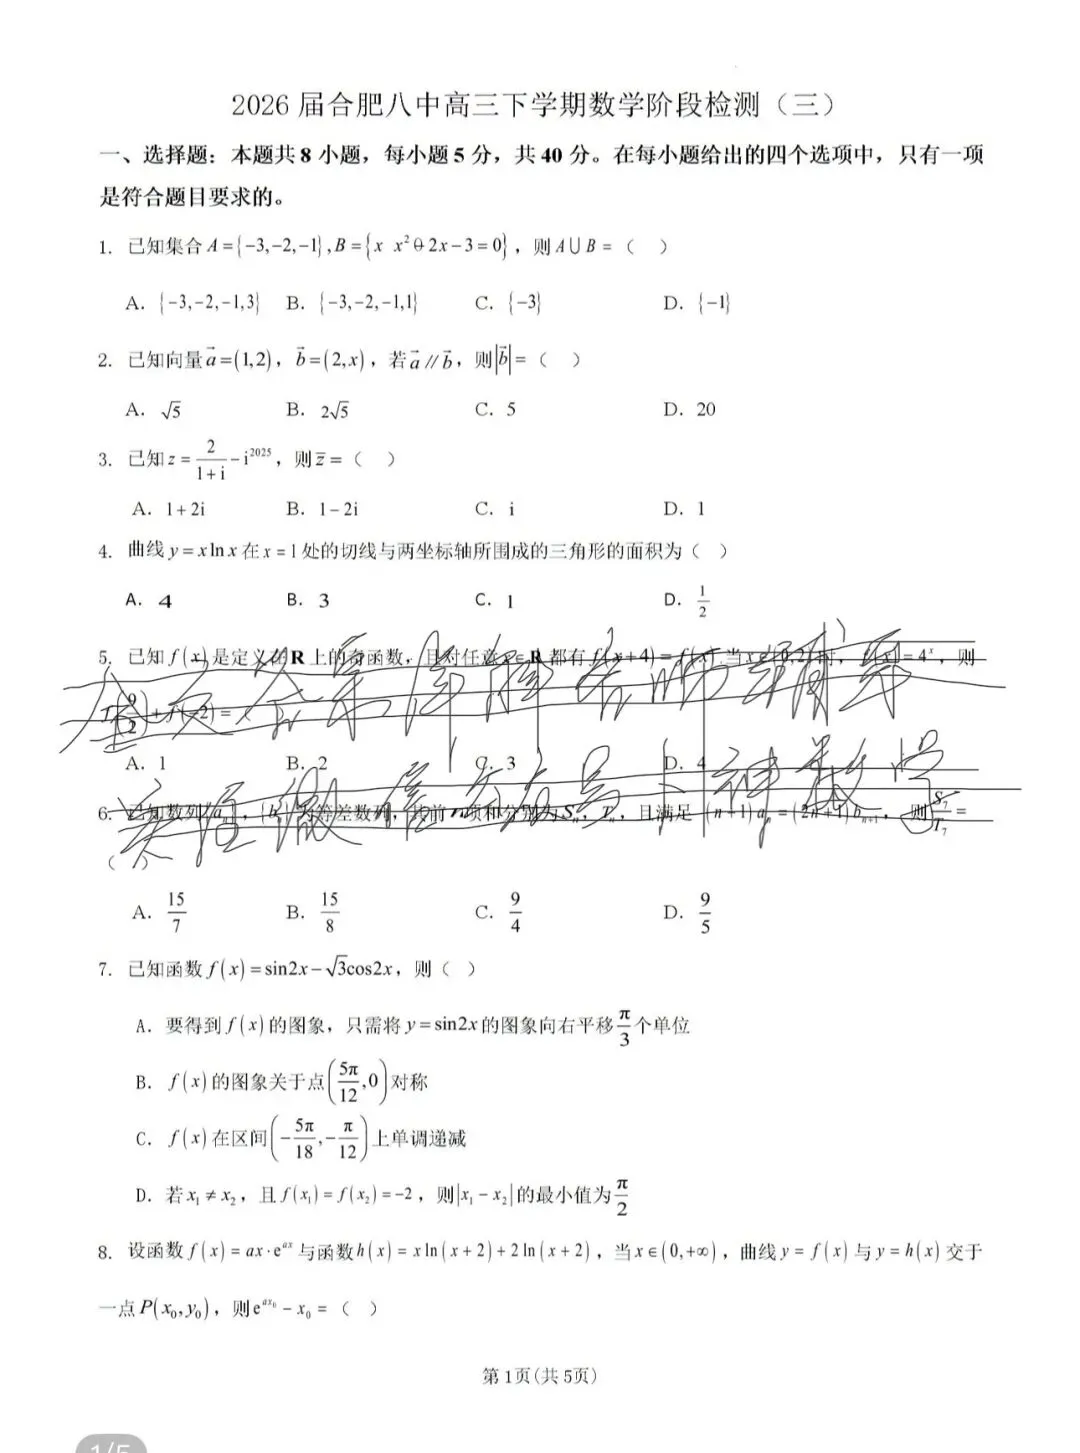 2026 届合肥八中高三下学期数学阶段检测（三）
一、选择题：本题共 8 小题，每小题 5 分，共 40 分。在每小题给出的四个选项中，只有一项
是符合题目要求的。
1. 已知集合 A={-3,-2,-1},B={x x²θ2x-3=0}，则 A∪B=（ ）
A. {-3,-2,-1,3} B. {-3,-2,-1,1} C. {-3} D. {-1}
2. 已知向量 a⃗=(1,2)，b⃗=(2,x)，若 a⃗∥b⃗，则|b⃗|=（ ）
A. √5 B. 2√5 C. 5 D. 20
3. 已知 z=2/(1+i)-i²⁰²⁵，则 z̅=（ ）
A. 1+2i B. 1-2i C. i D. 1
4. 曲线 y=xlnx 在 x=1 处的切线与两坐标轴所围成的三角形的面积为（ ）
A. 4 B. 3 C. 1 D. 1/2
5. 已知 f(x) 是定义在 R 上的奇函数，且对任意 x∈R 都有 f(x+4)=f(x).当 x∈(0,2) 时，f(x)=4ˣ，则
A. 1 B. 2 C. 3 D. 4
6. 已知数列 {aₙ}，{bₙ} 为等差数列，其前 n 项和分别为 Sₙ，Tₙ，且满足 (n+1)aₙ=(2n+1)bₙ₊₁，则 S₇/T₇=
（ ）
A. 15/7 B. 15/8 C. 9/4 D. 9/5
7. 已知函数 f(x)=sin2x-√3cos2x，则（ ）
A. 要得到 f(x) 的图象，只需将 y=sin2x 的图象向右平移 π/3 个单位
B. f(x) 的图象关于点 (5π/12,0) 对称
C. f(x) 在区间 (-5π/18,-π/12) 上单调递减
D. 若 x₁≠x₂，且 f(x₁)=f(x₂)=-2，则|x₁-x₂|的最小值为 π/2
8. 设函数 f(x)=ax·eᵃˣ 与函数 h(x)=xln(x+2)+2ln(x+2)，当 x∈(0,+∞)，曲线 y=f(x) 与 y=h(x) 交于
一点 P(x₀,y₀)，则 e^(ax₀)-x₀=（ ）
第 1页(共 5页)
1/5